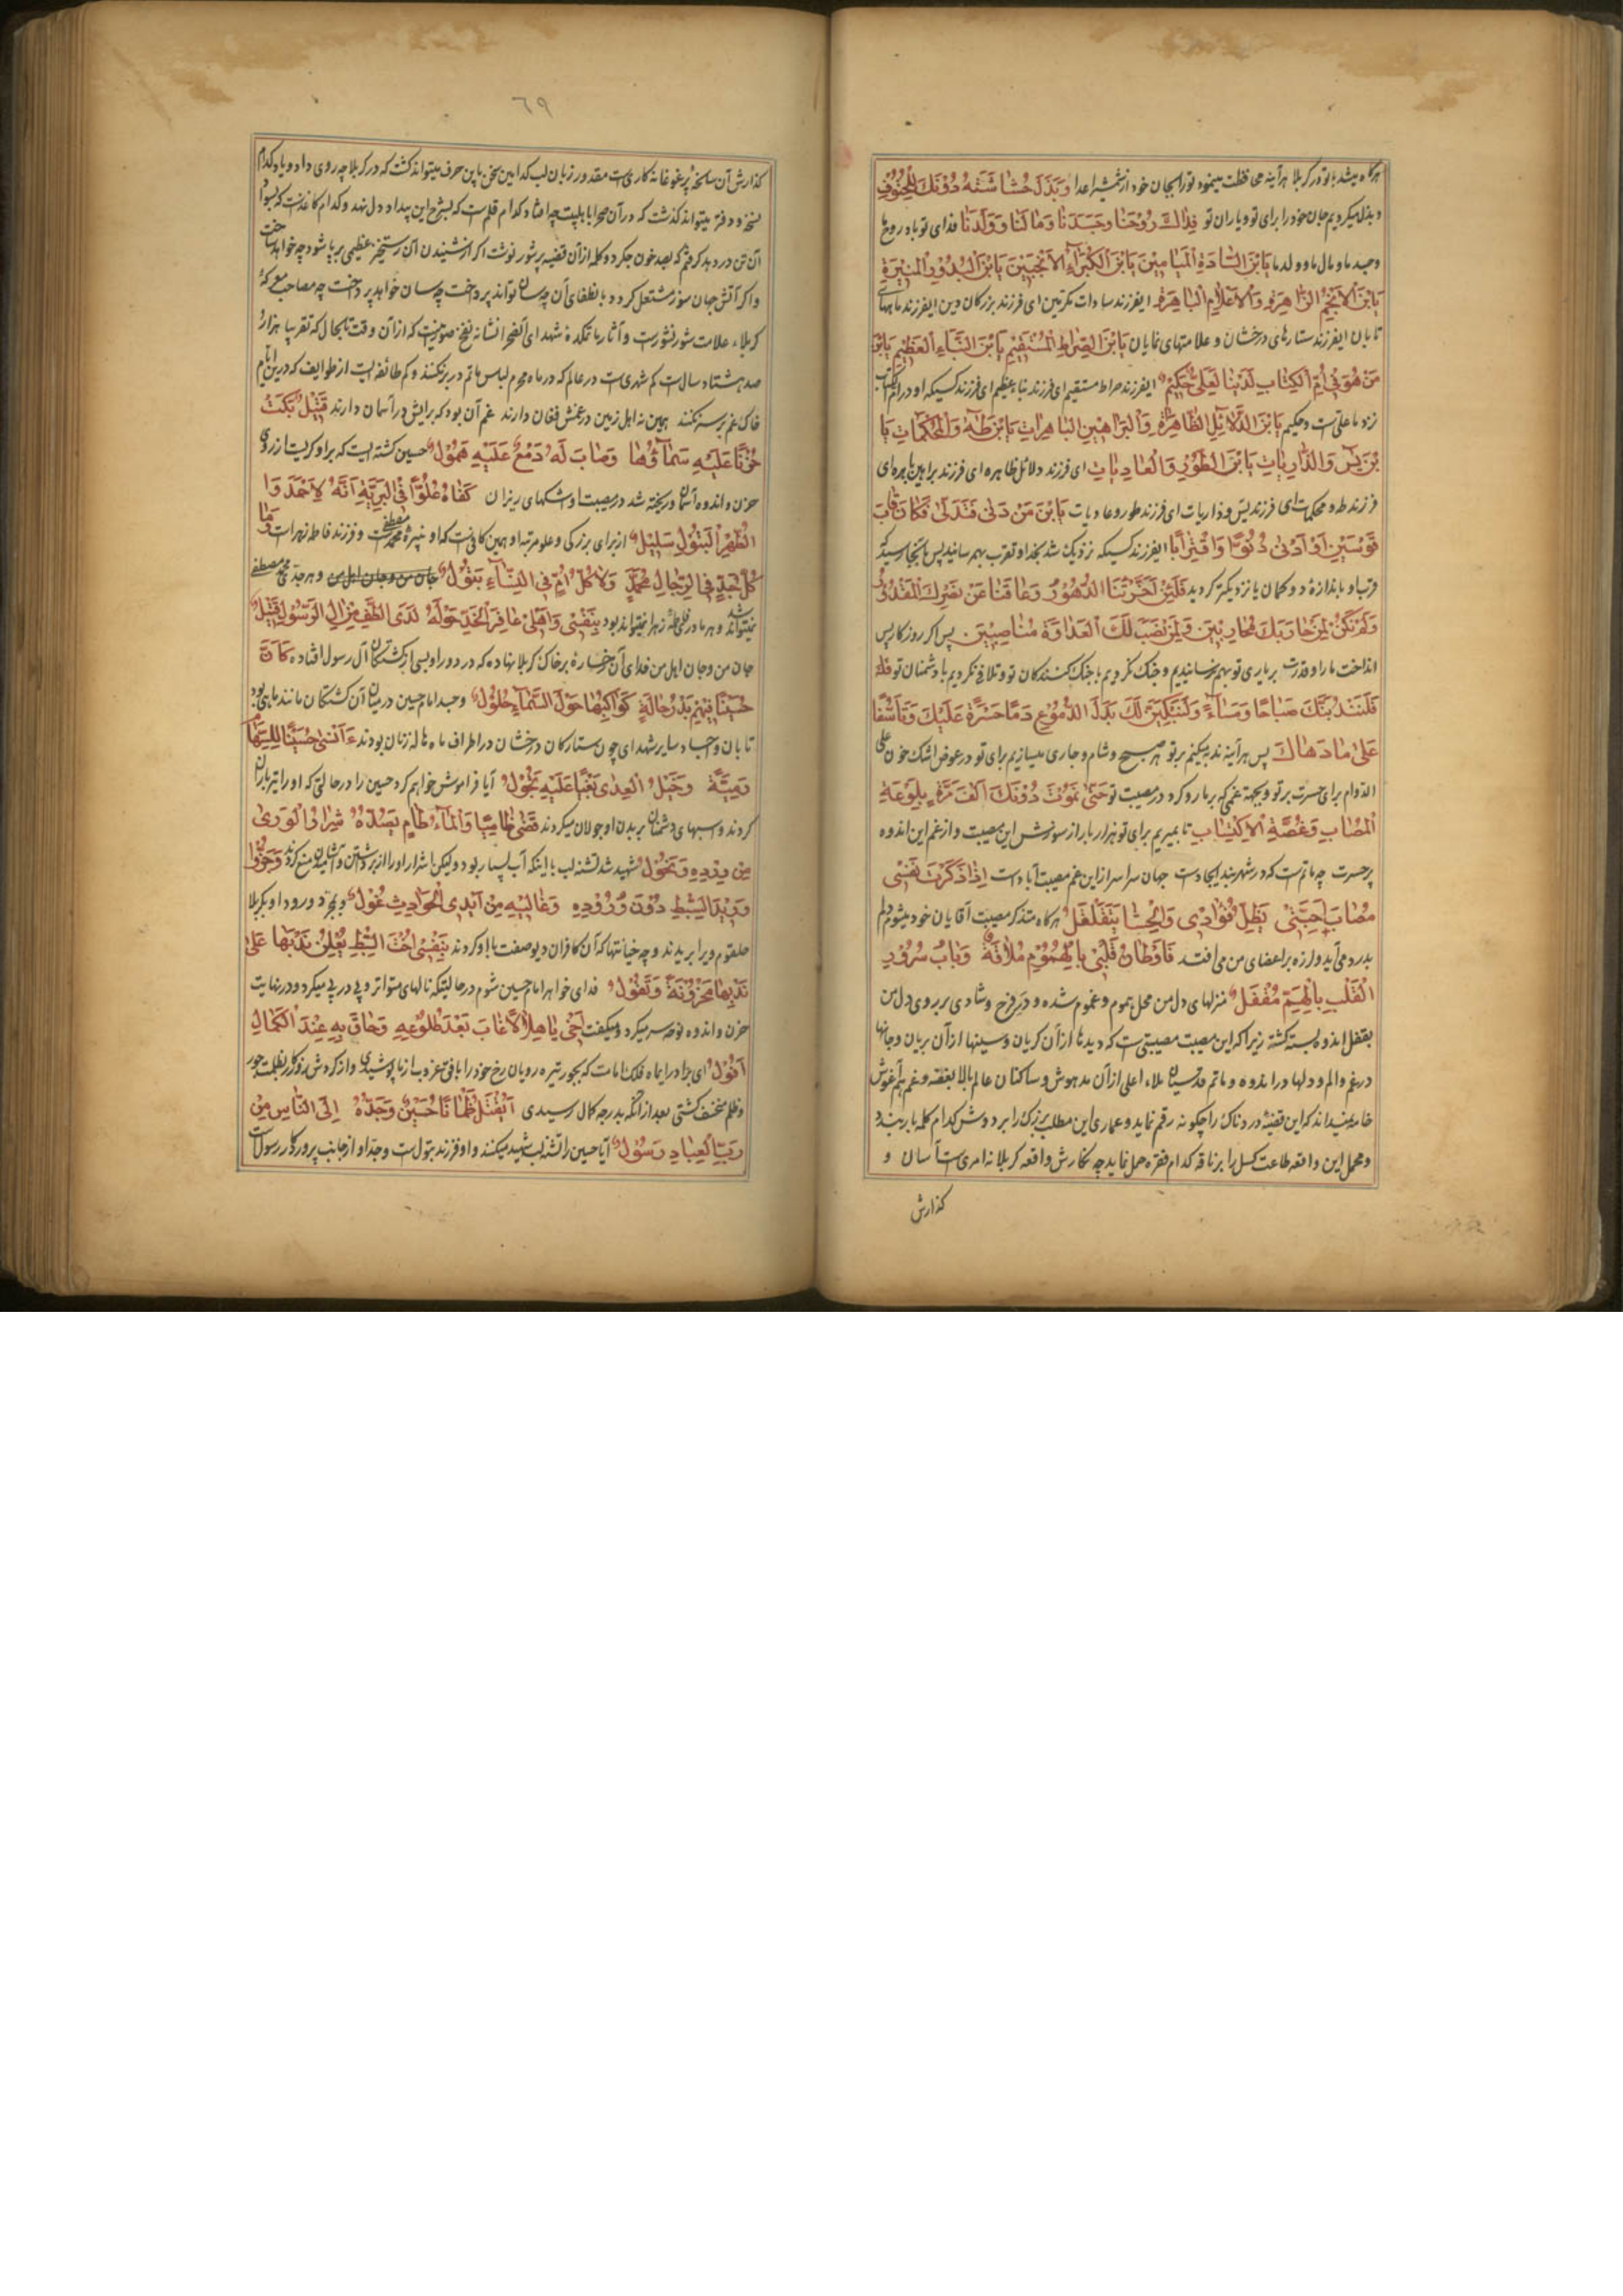 هرگاه میشد با تو در کربلا هرآینه محافظت مینمود تو را بجان خود از شمشیر اعدا وَبَذَلَ حُشَاشَتَهُ دُونَكَ لِلْحُتُوفِ
و بذل میکردیم جان خود را برای تو و یاران تو فِدَاكَ رُوحُنَا وَجَسَدُنَا وَمَالُنَا وَوَلَدُنَا فدای تو باد روح ما
و جسد ما و مال ما و ولد ما يَابْنَ السَّادَةِ الْمَيَامِينَ يَابْنَ الْكُبَرَآءِ الْأَنْجَبِينَ يَابْنَ الْبُدُورِ الْمُنِيرَةِ
يَابْنَ الْأَنْجُمِ الزَّاهِرَةِ وَالْأَعْلَامِ الْبَاهِرَةِ ایفرزند سادات مکرمین ای فرزند بزرکان دین ایفرزند ماههای
تابان ایفرزند ستارهای درخشان و علامتهای نمایان يَابْنَ الصِّرَاطِ الْمُسْتَقِيمِ يَابْنَ النَّبَاءِ الْعَظِيمِ يَابْنَ
مَنْ هُوَ فِي أُمِّ الْكِتَابِ لَدَيْنَا لَعَلِيٌّ حَكِيمٌ ایفرزند صراط مستقیم ای فرزند نباء عظیم ای فرزند کسیکه او در ام الکتاب
نزد ما علی است و حکیم يَابْنَ الدَّلَائِلِ الظَّاهِرَةِ وَالْبَرَاهِينِ الْبَاهِرَاتِ يَابْنَ طٰهٰ وَالْمُحْكَمَاتِ يَا
بْنَ يٰسٓ وَالذَّارِيَاتِ يَابْنَ الطُّورِ وَالْعَادِيَاتِ ای فرزند دلائل ظاهره ای فرزند براهین باهره ای
فرزند طه و محکمات ای فرزند یس و ذاریات ای فرزند طور و عادیات يَابْنَ مَنْ دَنٰى فَتَدَلّٰى فَكَانَ قَابَ
قَوْسَيْنِ أَوْ أَدْنٰى دُنُوًّا وَاقْتِرَابًا ایفرزند کسیکه نزدیک شد بخدا و تقرب بهم رسانید پس بآنجا رسید که
قرب او باندازهٔ دو کمان یا نزدیکتر کردید فَلَئِنْ أَخَّرَتْنَا الدُّهُورُ وَعَاقَنَا عَنْ نَصْرِكَ الْمَقْدُورُ
وَلَمْ نَكُنْ لِمَنْ حَارَبَكَ مُحَارِبِينَ وَلِمَنْ نَصَبَ لَكَ الْعَدَاوَةَ مُنَاصِبِينَ پس اکر روزکار پس
انداخت ما را و قدرت بر یاری تو بهم نرسانیدیم و جنک نکردیم با جنک کنندکان تو و تلافی نکردیم با دشمنان تو
فَلَنَنْدُبَنَّكَ صَبَاحًا وَمَسَاءً وَلَنَبْكِيَنَّ لَكَ بَدَلَ الدُّمُوعِ دَمًا حَسْرَةً عَلَيْكَ وَتَأَسُّفًا
عَلٰى مَا دَهَاكَ پس هرآینه ندبه میکنم بر تو هر صبح و شام و جاری میسازیم برای تو در عوض اشک خون علی
الدوام برای حسرت بر تو و بجهة غمی که بر ما رو کرد در مصیبت تو حَتّٰى نَمُوتَ دُونَكَ أَلْفَ مَرَّةٍ بِلَوْعَةِ
الْمُصَابِ وَغُصَّةِ الْاِكْتِيَابِ تا بمیریم برای تو هزار بار از سوزش این مصیبت و از غم این اندوه
پر حسرت چه ماتم است که در شهربند ایجاد است جهان سراسر از این غم مصیبت آباد است إِذَا ذَكَرَتْ نَفْسِي
مُصَابَ أَحِبَّتِي يَظِلُّ فُؤَادِي وَالْحَشَا يَتَقَلْقَلُ هرکاه متذکر مصیبت آقایان خود میشوم دلم
بدرد می آید و لرزه بر اعضای من می افتد فَأَوْطَانُ قَلْبِي بِالْهُمُومِ مُلَأْنَةٌ وَبَابُ سُرُورِ
الْقَلْبِ بِالْهَمِّ مُقْفَلٌ منزلهای دل من محل هموم و غموم شده و در فرح و شادی بر روی دل من
بقفل اندوه بسته کشته زیرا که این مصیبت مصیبتی است که دیدها از آن کریان و سینها از آن بریان و جانها
در غم و الم و دلها در اندوه و ماتم قدسیان ملاء اعلی از آن مدهوش و ساکنان عالم بالا بغصه و غم هم آغوش
خامه نمیداند که این قضیهٔ دردناک را چکونه رقم نماید و عماری این مطلب بزرک را بر دوش کدام کلمه بار بندد
و محمل این واقعه طاعت کسل را بر ناقه کدام فقره حمل نماید چه نکارش واقعه کربلا نه امریست آسان و
کذارش
٦٩
کذارش آن سانحه پرغوغا نه کاریست مقدور زبان لب کدامین سخن باین حرف میتواند کشت که در کربلا چه روی داد و یاد کدام
نسخه و دفتر میتواند کذشت که در آن صحرا باهلبیت چه افتاد کدام قلم است که بشرح این بیداد دل نهد و کدام کاغذ است که بسواد
آن تن در دهد کرفتم که بصد خون جکر دو کلمه از آن قضیه پرشور نوشت اکر از شنیدن آن رستخیز عظیمی برپا شود چه خواهد ساخت
و اکر آتش جان سوز مشتعل کردد باطفای آن چه سان تواند پرداخت چه سان خواهد پرداخت چه مصاحب مع که
کربلاء علامت شور نشور است و آثار ماتمکدهٔ شهدای آنصحرا نشاء نفخ صور نیست که از آن وقت تا بحال که تقریبا هزار و
صد هشتاد سال است کم شهری است در عالم که در ماه محرم لباس ماتم در بر نکنند و کم طائفه ایست از طوایف که در این ایام
خاک غم بر سر نکنند همین نه اهل زمین در غمش فغان دارند غم آن بود که برایش در آسمان دارند قَتِيلٌ بَكَتْ
حُزْنًا عَلَيْهِ سَمَآؤُهَا وَصَابَ لَهُ دَمْعٌ عَلَيْهِ هَمُولٌ حسین کشته ایست که بر او کریست از روی
حزن و اندوه آسمان و ریخته شد در مصیبت او اشکهای ریزان كَفَاهُ عُلُوًّا فِي الْبَرِيَّةِ أَنَّهُ لِأَحْمَدَ وَا
لطُّهْرِ الْبَتُولِ سَلِيلٌ از برای بزرکی و علو مرتبه او همین کافی است که او نبیرهٔ محمد مصطفی است و فرزند فاطمه زهرا است وَمَا
كُلُّ جَدٍّ فِي الرِّجَالِ مُحَمَّدٌ وَلَا كُلُّ أُمٍّ فِي النِّسَآءِ بَتُولٌ جان من و جان اهل من و هر جدی محمد مصطفی
نمیتواند شد و هر مادر فاطمهٔ زهرا نمیتواند بود بِنَفْسِي وَأَهْلِي عَافِرَ الْخَدِّ حَوْلَهُ لَدَى الطَّفِّ مِنْ اٰلِ الرَّسُولِ قَتِيلٌ
جان من و جان اهل من فدای آن رخسارهٔ بر خاک کربلا نهاده که در دور او بسی از کشتکان آل رسول افتاده كَأَنَّ
حُسَيْنًا فِيهِمُ بَدْرُ هَالَةٍ كَوَاكِبُهَا حَوْلَ السَّمَآءِ حُلُولٌ و جسد امام حسین در میان آن کشتکان مانند ماهی بود
تابان و اجساد سایر شهدای چون ستارکان درخشان در اطراف ماه هاله زنان بودند ءَأَنْسٰى حُسَيْنًا لِلسِّهَامِ
رَمِيَّةً وَخَيْلُ الْعِدٰى بَغْيًا عَلَيْهِ تَجُولُ آیا فراموش خواهم کرد حسین را در حالتی که او را تیرباران
کردند و اسبهای دشمنان بر بدن او جولان میکردند قَضٰى ظَامِيًا وَالْمَآءُ طَامٍ تَصُدُّهُ شِرَارُ الْوَرٰى
مِنْ وِرْدِهِ وَتَحُولُ شهید شد تشنه لب با اینکه آب بسیار بود و لیکن اشرار او را از برداشتن و آشامیدن منع کردند وَحَزُّوا
وَرِيدَ السِّبْطِ دُونَ وُرُودِهِ وَغَالَتْهُ مِنْ أَيْدِي الْحَوَادِثِ غُولٌ و بمجرد ورود او بکربلا
حلقوم ویرا بریدند و چه خیانتها که آن کافران دیو صفت با او کردند بِنَفْسِي أُخْتَ السِّبْطِ تُعْلِنُ نَدْبَهَا عَلٰى
نَدْبِهَا مَحْزُونَةً وَتَقُولُ فدای خواهر امام حسین شوم در حالتیکه نالهای متواتر و پی در پی میکرد و در نهایت
حزن و اندوه نوحه سر میکرد و میکفت أَخِي يَا هِلَالًا غَابَ بَعْدَ طُلُوعِهِ وَحَاقَ بِهِ عِنْدَ الْكَمَالِ
أُفُولُ ای برادر ایماه فلک امامت که بجور تیره رویان رخ خود را بافق غروب از ما پوشیدی و از کردش روزکار بظلمت جور
و ظلم منخسف کشتی بعد از آنکه بدرجه کمال رسیدی أَيُقْتَلُ ظَمْاٰنًا حُسَيْنٌ وَجَدُّهُ إِلَى النَّاسِ مِنْ
رَبِّ الْعِبَادِ رَسُولٌ آیا حسین را تشنه لب شهید میکنند و او فرزند بتول است و جد او از جانب پروردکار رسول است